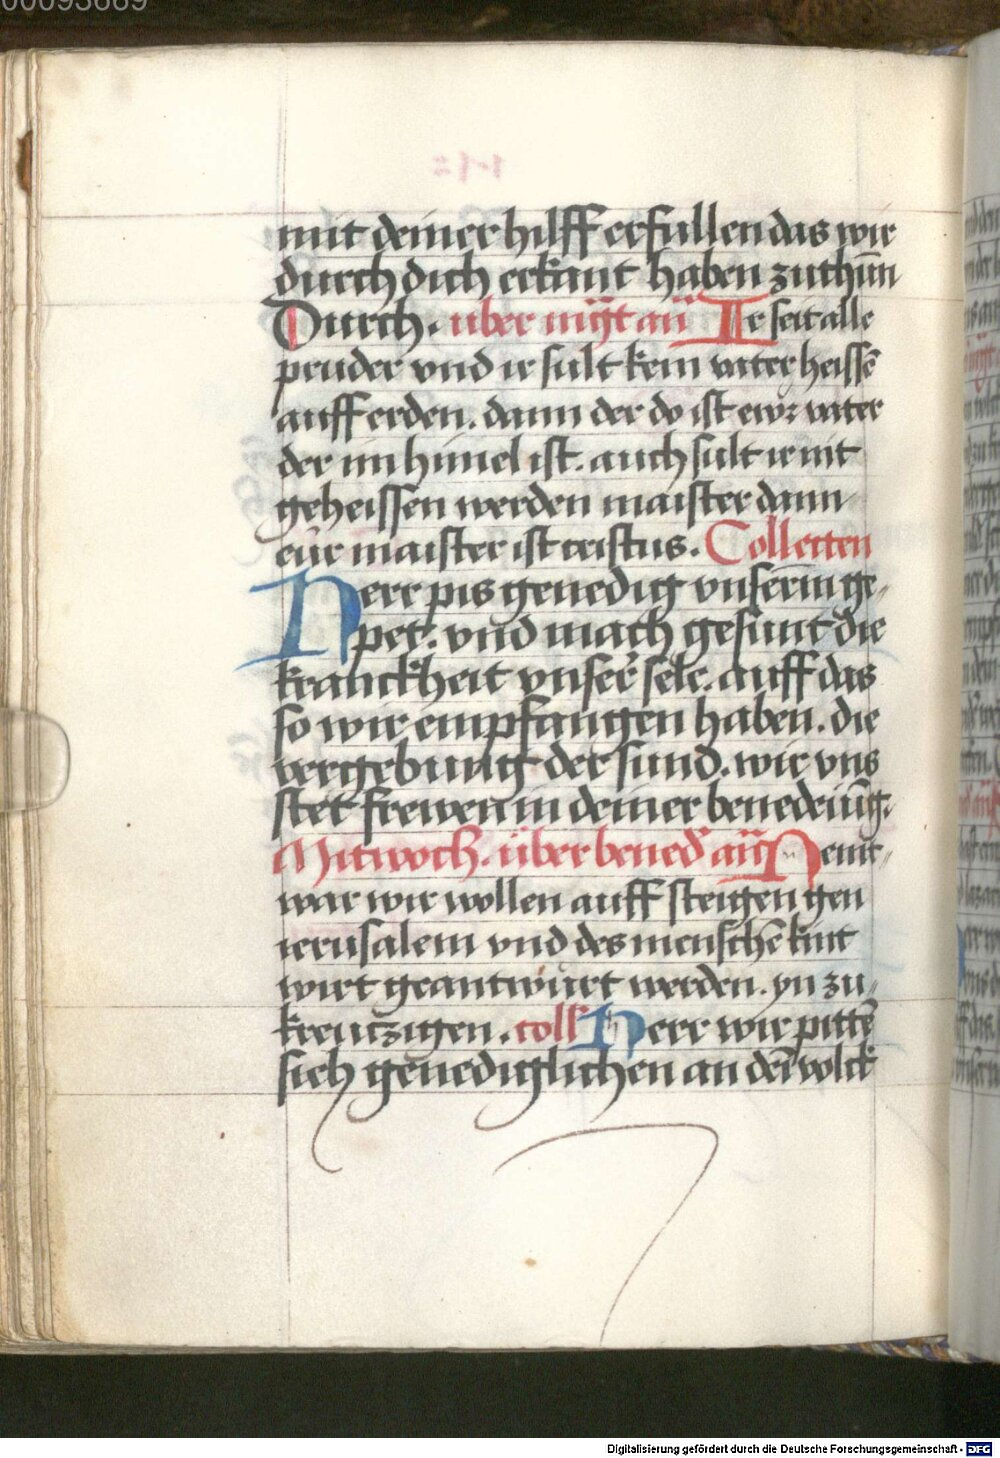 00093669
mit deiner hilff erfullen das wir
durch dich erkant haben zuthūn
Durch. uber mgt̄ añ Ir seit alle
pruder vnd ir sult kein vater heissē
auff erden. dann der do ist ewr vater
der im himel ist. auch sult ir nit
geheissen werden maister dann
eür maister ist cristus. Collecten
Herr pis genedig vnserm̄ ge⸗
pet. vnd mach gesunt die
kranckheit vnser sele. auff das
so wir empfangen haben. die
vergebung der sund. wir vns
stet frewen in deiner benedeiūg.
Mitwoch. über bened̄ añ Nemt⸗
war wir wollen auff steigen gen
ierusalem vnd des menschē kint
wirt geantwurt werden. yn zu⸗
kreutzigen. coll Herr wir pittē
sich genediglichen an dein volck
Digitalisierung gefördert durch die Deutsche Forschungsgemeinschaft - DFG